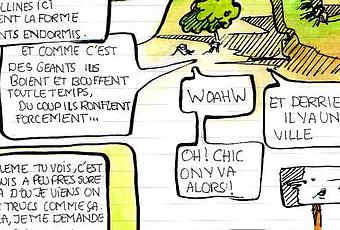 LLINES ICI
ENT LA FORME
NTS ENDORMIS.
ET COMME C'EST
DES GEANTS ILS
BOIENT ET BOUFFENT
TOUT LE TEMPS,
DU COUP ILS RONFLENT
FORCEMENT...
WOAHW
OH! CHIC
ON Y VA
ALORS!
ET DERRIE
IL YA UN
VILLE
LEME TU VOIS, C'EST
UIS A PEU PRES SURE
A D'OU JE VIENS ON
TRUCS COMME ÇA.
A, JE ME DEMANDE